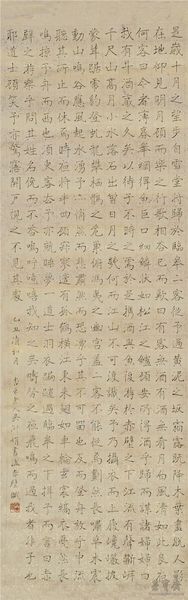 是歲十月之望步自雪堂將歸於臨皋二客從予過黃泥之坂霜露既降木葉盡脫人影
在地仰見明月顧而樂之行歌相答已而歎曰有客無酒有酒無肴月白風清如此良夜
何客曰今者薄暮舉網得魚巨口細鱗狀如松江之鱸顧安所得酒乎歸而謀諸婦婦曰
我有斗酒藏之久矣以待子不時之需於是攜酒與魚復遊於赤壁之下江流有聲斷岸
千尺山高月小水落石出曾日月之幾何而江山不可復識矣予乃攝衣而上履巉巖披
蒙茸踞虎豹登虬龍攀棲鶻之危巢俯馮夷之幽宮蓋二客不能從焉劃然長嘯草木震
動山鳴谷應風起水湧予亦悄然而悲肅然而恐凜乎其不可留也反而登舟放乎中流
聽其所止而休焉時夜將半四顧寂寥適有孤鶴橫江東來翅如車輪玄裳縞衣戛然長
鳴掠予舟而西也須臾客去予亦就睡夢一道士羽衣翩躚過臨皋之下揖予而言曰赤
壁之遊樂乎問其姓名俛而不答嗚呼噫嘻我知之矣疇昔之夜飛鳴而過我者非子也
耶道士顧笑予亦驚寤開戶視之不見其處 乙丑清和月